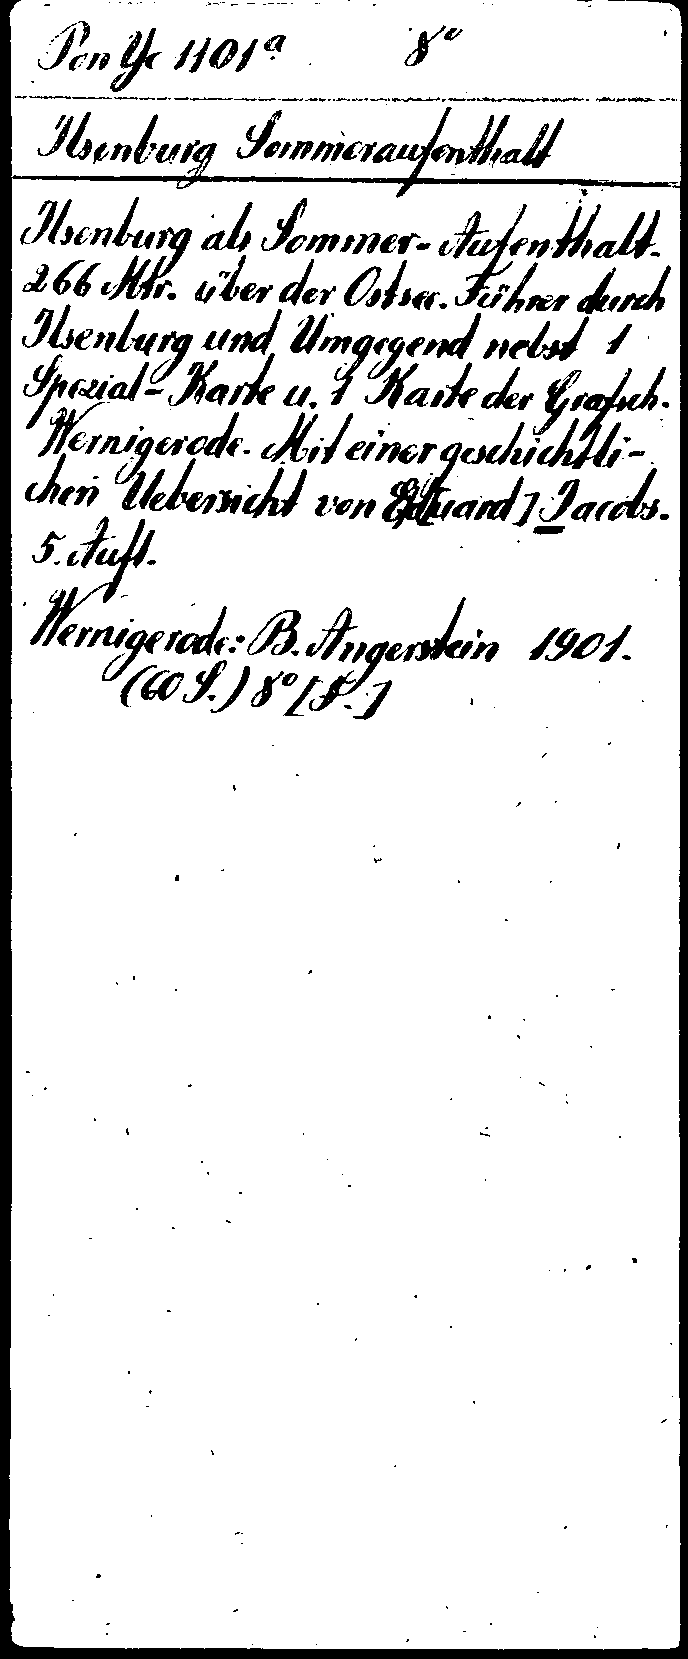 Pon Yc 1101a 8°
Ilsenburg Sommeraufenthalt
Ilsenburg als Sommer-Aufenthalt.
266 Mtr. über der Ostsee. Führer durch
Ilsenburg und Umgegend nebst 1
Spezial-Karte u. 1 Karte der Grafsch.
Wernigerode. Mit einer geschichtli-
chen Uebersicht von Ed[uard] Jacobs.
5. Aufl.
Wernigerode: B. Angerstein 1901.
(60 S.) 8°